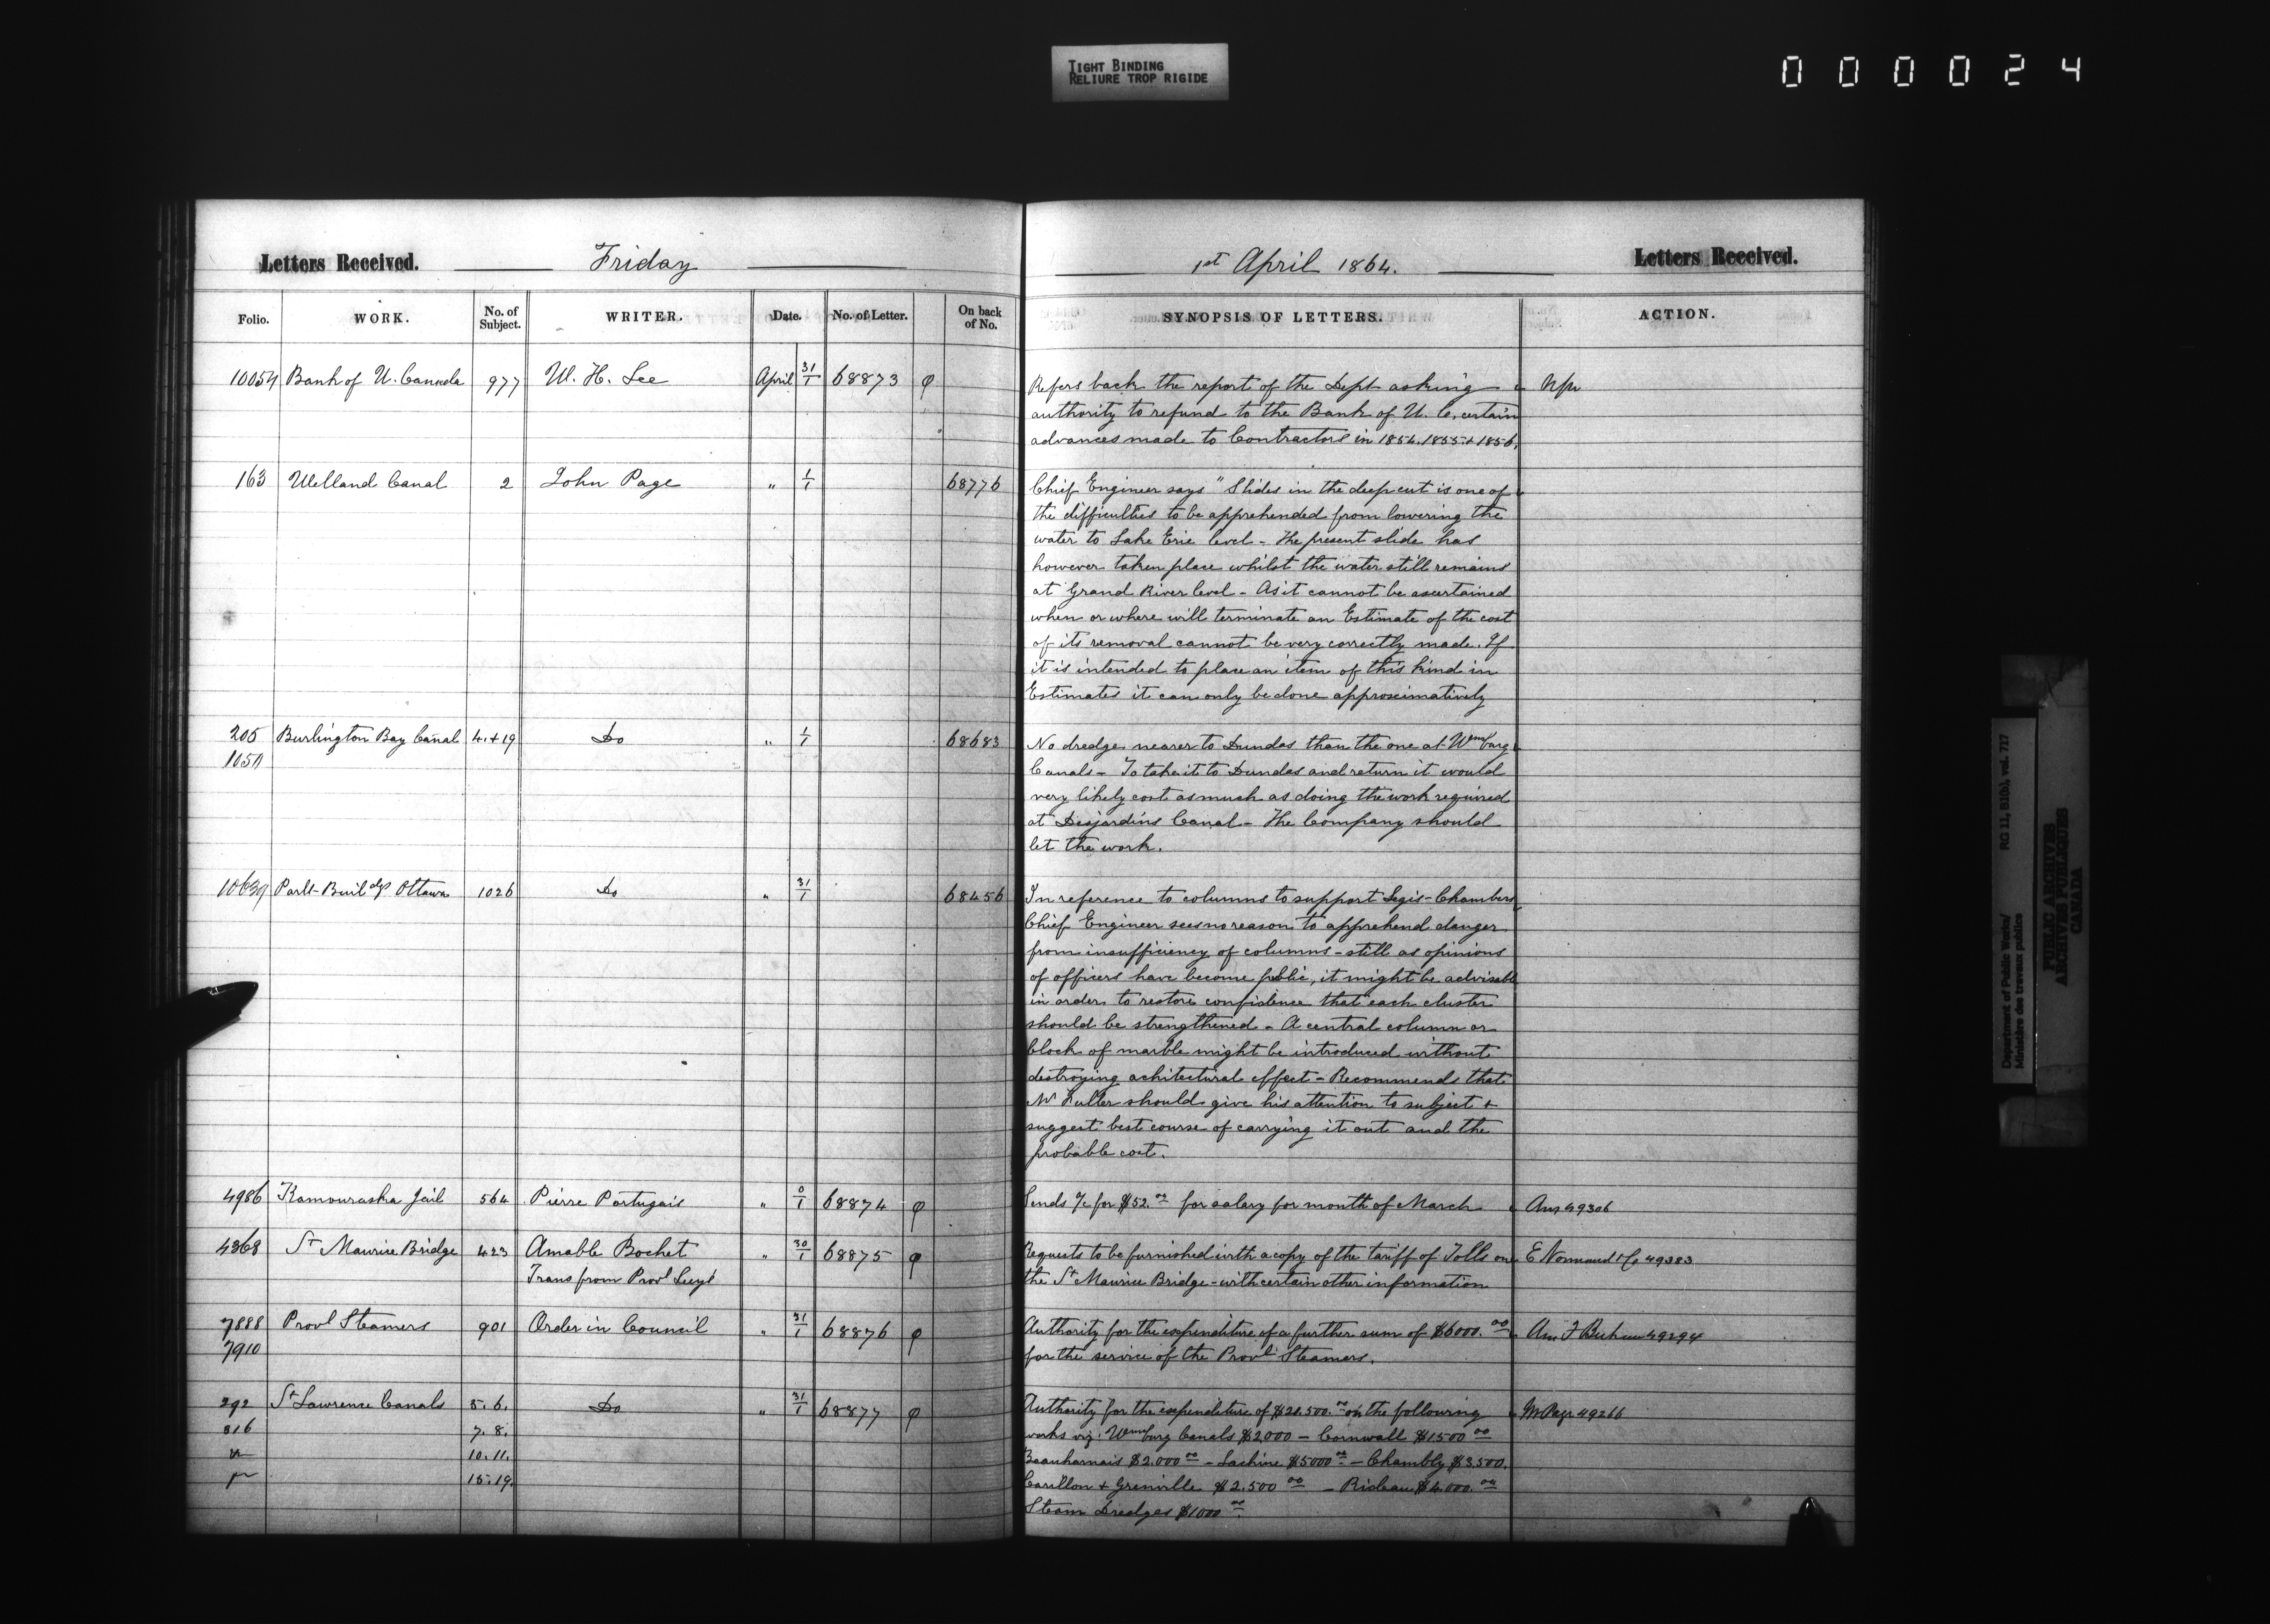 TIGHT BINDING
RELIURE TROP RIGIDE
000024
Letters Received. Friday 1st April 1864. Letters Received.
Folio. WORK. No. of Subject. WRITER. Date. No. of Letter. On back of No. SYNOPSIS OF LETTERS. ACTION.
10054 Bank of U. Canada 977 W. H. Lee April 31/1 68873 φ Refers back the report of the Dept asking
authority to refund to the Bank of U. C. certain
advances made to Contractors in 1854. 1855 + 1856.
163 Welland Canal 2 John Page " 1/1 68776 Chief Engineer says "Slides in the deep cut is one of
the difficulties to be apprehended from lowering the
water to Lake Erie level - The present slide has
however taken place whilst the water still remains
at Grand River level - As it cannot be ascertained
when or where will terminate an Estimate of the cost
of its removal cannot be very correctly made. If
it is intended to place an item of this kind in
Estimates it can only be done approximatively
205 Burlington Bay Canal 4.+19 Do " 1/1 68683 No dredge nearer to Dundas than the one at Wmsburg
Canals - To take it to Dundas and return it would
very likely cost as much as doing the work required
at Desjardins Canal - The Company should
let the work.
10639 Parlt Buildgs Ottawa 1026 Do " 31/1 68456 In reference to columns to support Legis - Chambers
Chief Engineer sees no reason to apprehend danger
from insufficiency of columns - still as opinions
of officers have become public, it might be advisable
in order to restore confidence that each cluster
should be strengthened - A central column or
block of marble might be introduced without
destroying achitectural effect - Recommends that
Mr Fuller should give his attention to subject +
suggest best course of carrying it out and the
probable cost.
4986 Kamouraska Jail 564 Pierre Portugais " 0/1 68874 φ Sends a/c for $52.00 for salary for month of March Ans 49306
4368 St Maurice Bridge 423 Amable Bochet " 30/1 68875 φ Requests to be furnished with a copy of the tariff of Tolls on E Normand + Co 49383
Trans from Provl Secy's the St Maurice Bridge - with certain other information
7888 Provl Steamers 901 Order in Council " 31/1 68876 φ Authority for the expenditure of a further sum of $6000.00 49294
7910 for the service of the Provl Steamers.
292 St Lawrence Canals 5. 6. Do " 31/1 68877 φ Authority for the expenditure of $21.500.00 on the following Mr Page 49266
316 7. 8. works viz: Wmsburg Canals $2,000 - Cornwall $1500 00
10. 11. Beauharnais $2.000 00 - Lachine $5000 00 - Chambly $3.500.
15. 19. Carillon + Grenville $2.500 00 - Rideau $4.000.00
Steam Dredges $1000 00
Department of Public Works/ RG 11, B1(b), vol. 717
Ministère des travaux publics
PUBLIC ARCHIVES
ARCHIVES PUBLIQUES
CANADA